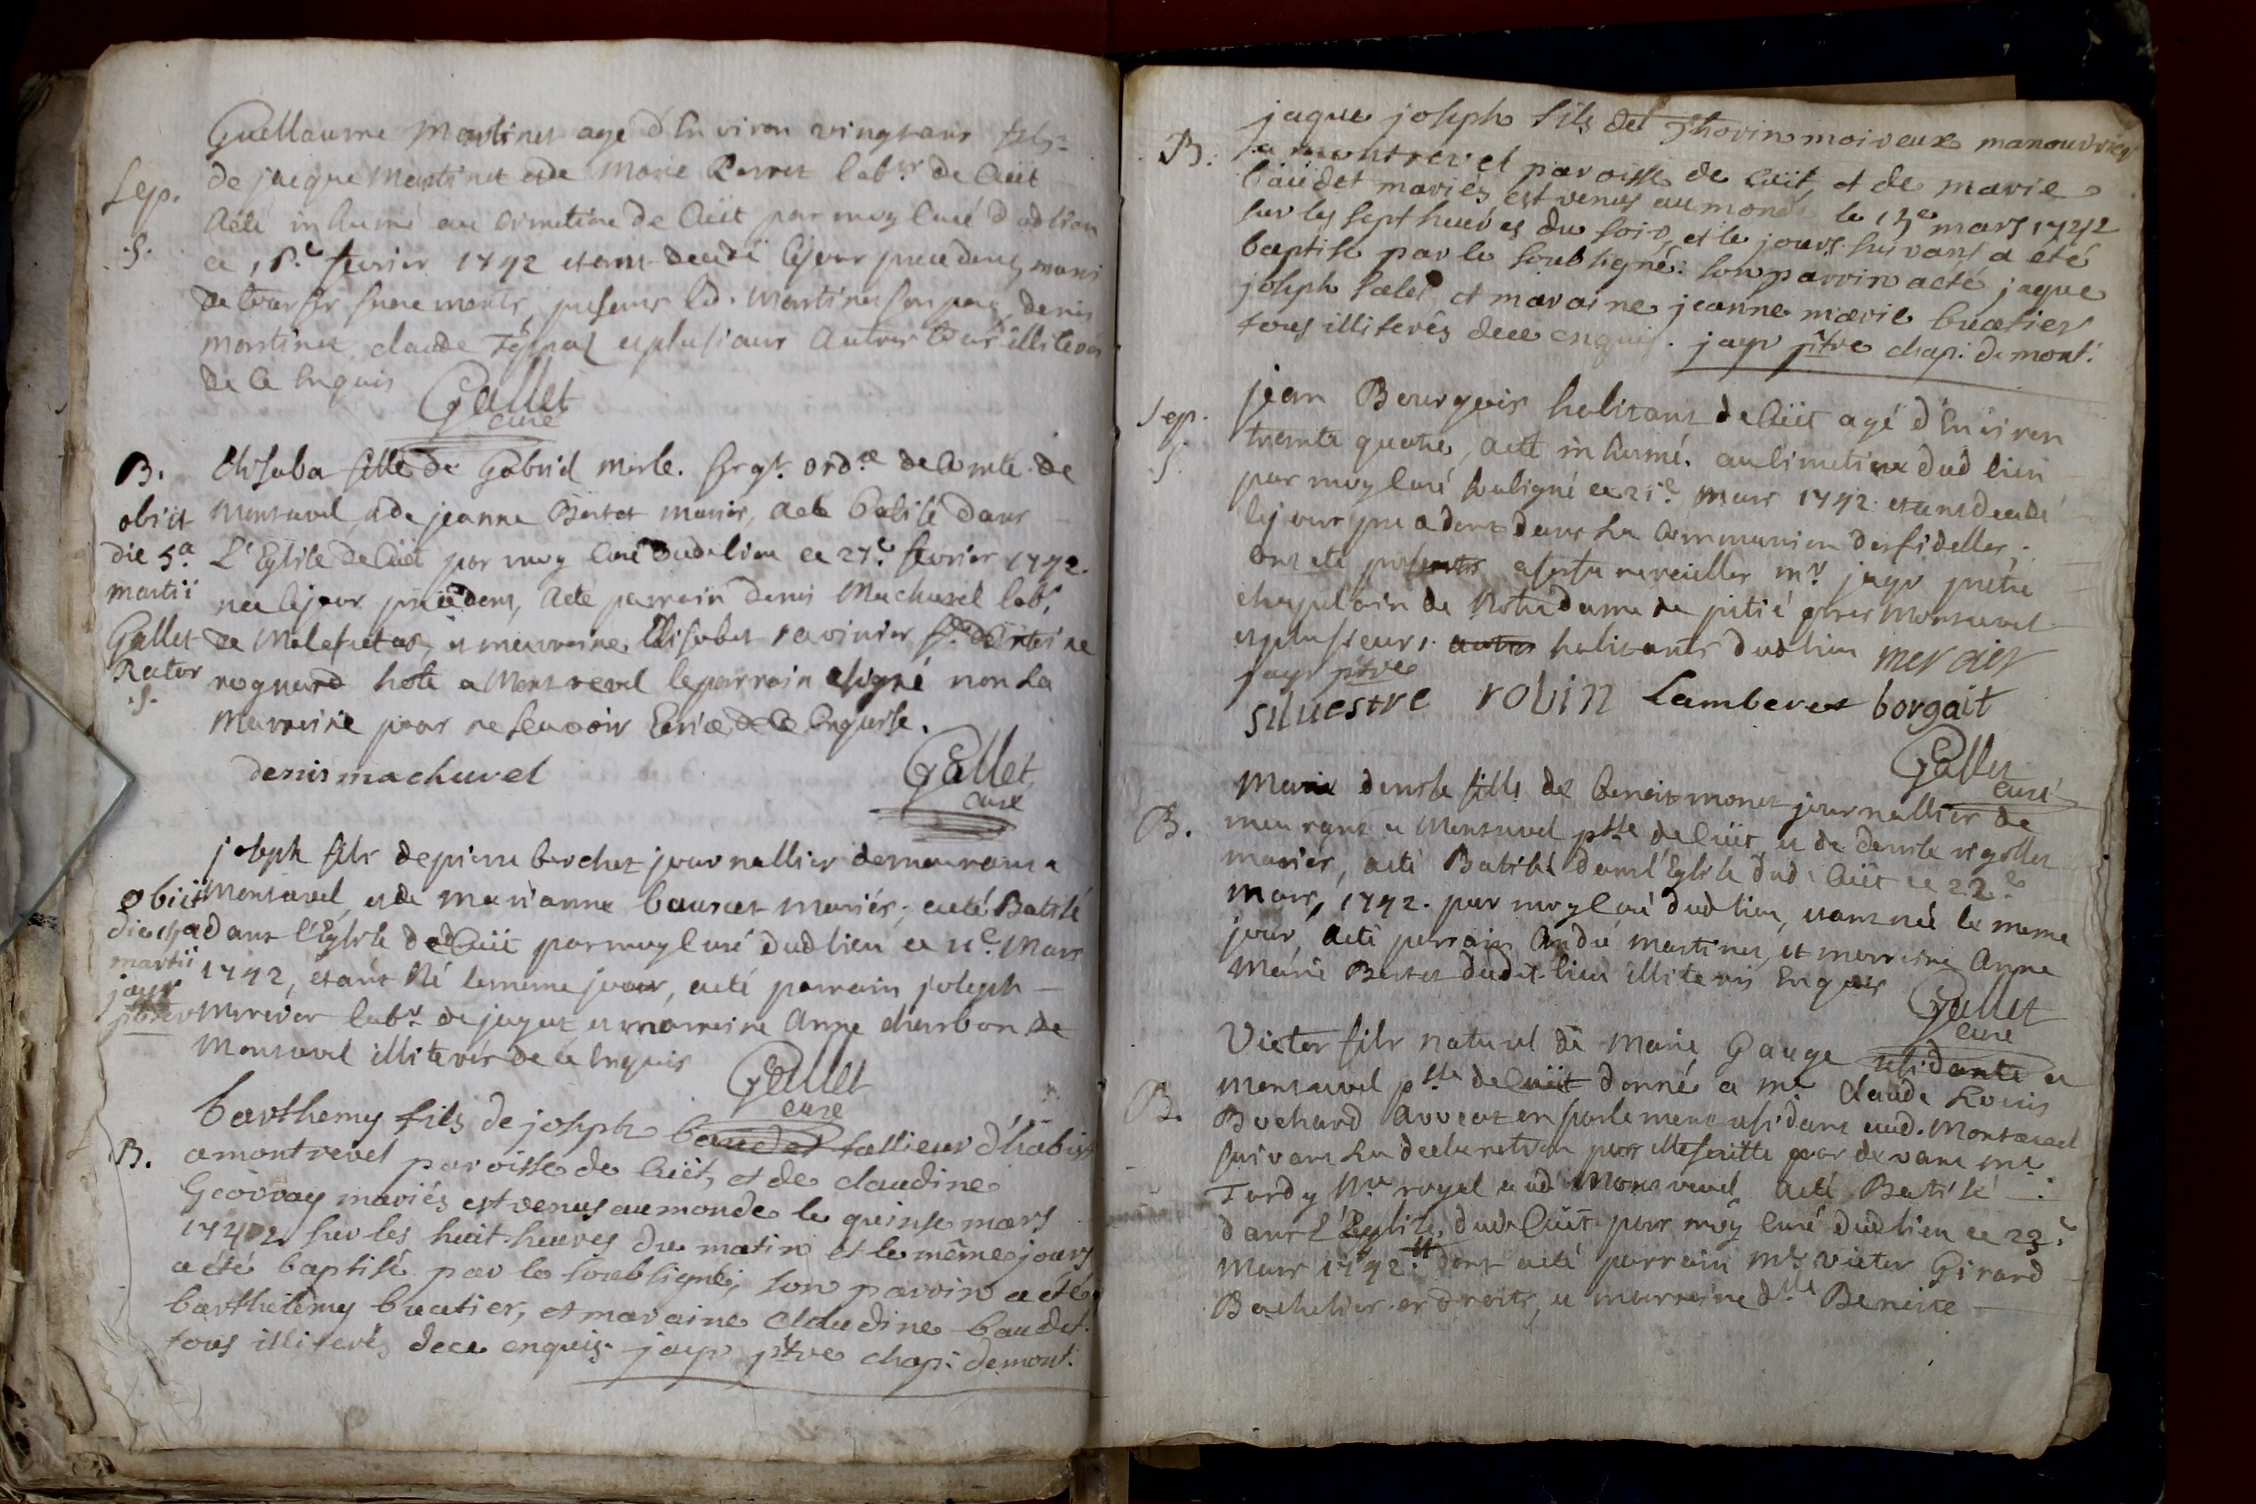 Guellaume Martinet agé d'Environ vingt ans fils
de jacque Martinet et de Marie Perret lab.r de Cüet
Sep.
Aété inhumé au cimetiere de Cüet par moy Curé dudlieu
.S.
ce 18.e fevrier 1742 etant decedé le jour precedent, muni
de tous ses sacrements, presents led. Martinet son pere, denis
martinet, claude et plusieurs Autres tous illiterés
de Ce Enquis
Gallet
curé
B.
Elisaba fille de Gabriel Merle. sergt. ord.re de Comté de
obiit
Montrevel et de jeanne Bertet mariés, Aeté Batisé dans
die 5a
L'Eglise de Cüet par moy Curé dudlieu ce 27.e fevrier 1742.
martii
née le jour precedent, Aeté parrain denis Machurel lab.r
Gallet
de Malefretaz, et marraine Elisabet ravinier fe. d'Antoine
Rector
roguerd hote a Montrevel le parrain asigné non la
.S.
Marraine pour ne scavoir Ecrire de Ce Enquise.
denis machurel
Gallet
curé
joseph fils de pierre berchet journallier demeurant a
obiit
Montrevel, et de Marianne bauret mariés, aeté Batisé
die
dans l'Eglise de Cüet par moy Curé dudlieu ce 11.e Mars
martii
1742, etant Né le meme jour, aeté parrain joseph
jayr
Mercier lab.r de jayat, et marraine Anne charbon de
Montrevel illiterés de ce Enquis
Gallet
curé
barthemy fils de joseph baudet tallieur d'habis
B.
a montrevel paroisse de Cüet, et de claudine
Geovray mariés est venus au monde le quinse mars
1742 sur les huit heures du matin et le même jours
a été baptisé par le soubsigné, son parrin a été
barthelemy buatier, et maraine Claudine baudet
tous illiterés dece enquis. jayr ptre chap: demont:
jaque joseph fils de Thorin moiveux manouvrier
B.
a montrevel paroisse de Cüet, et de marie
baudet mariés est venus au monde le 15e mars 1742
sur les sept heures du soir, et le jours suivant a été
baptisé par le soubsigné: son parrin acté jaque
joseph et maraine jeanne marie buatier
tous illiterés dece enquis. jayr ptre chap: de mont:
Sep.
jean Bourgeois habitant de Cüet agé d'Environ
S
trente quatre, Aété inhumé. au Cimetiere dud lieu
par moy Curé soussigné ce 21.e Mars 1742. etant decedé
le jour precedent dans la Communion des fidelles;
ont eté presents a ses funerailles mr. jayr pretre
chapelain de Notre dame de pitié pres Montrevel
et plusieurs autres habitants dudlieu mercier
jayr ptre
siluestre robin Lamberet borgait
Gallet
curé
Marie denise fille de benoit monet journallier de
B.
meurant a Montrevel psse de Cüet, et de denise rigollet
mariés, aeté Batisé dans l'Eglise dud. Cüet ce 22.e
Mars, 1742. par moy Curé dudlieu, etant née le meme
jour, Aeté parrain André Martinet, et marraine Anne
Marie Bertet dudit lieu illiterés Enquis
Gallet
curé
Victor fils naturel de Marie Gauge residante a
B.
Montrevel psse de Cüet donné a me Claude Louis
Bochard Avocat en parlement residant aud. Montrevel
suivant la declaration par elle faitte par devant me
Tardy Nre royal aud Montrevel Aeté Batisé
dans l'Eglise dud. Cüet par moy Curé dudlieu ce 23.e
Mars 1742. dont aeté parrain Mr. Victor Girard
Bachelier es droits, et marraine dlle Benoite